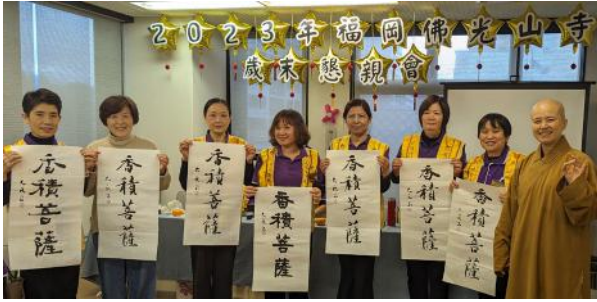 2023年福岡佛光山寺
歲末懇親會
香積菩薩
香積菩薩
香積菩薩
香積菩薩
香積菩薩
香積菩薩
香積菩薩